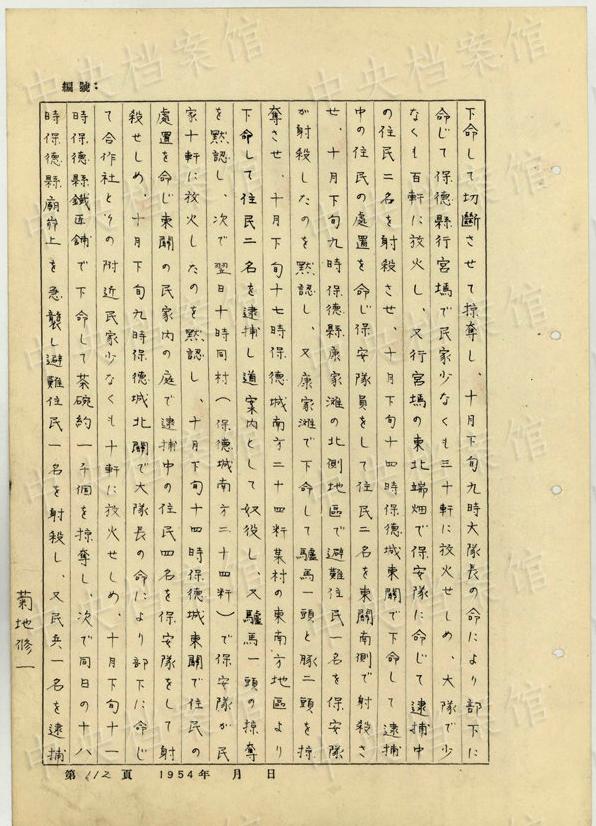 編號：
下命して切斷させて掠奪し、十月下旬九時大隊長の命により部下に
命じて保德縣行宮塢で民家少なくも三十軒に放火せしめ、大隊で少
なくも百軒に放火し、又行宮塢の東北端畑で保安隊に命じて逮捕中
の住民二名を射殺させ、十月下旬十四時保德城東關で下命して逮捕
中の住民の處置を命じ保安隊員をして住民二名を東關南側で射殺さ
せ、十月下旬九時保德縣康家灘の北側地區で避難住民一名を保安隊
が射殺したのを黙認し、又康家灘で下命して驢馬一頭と豚二頭を掠
奪させ、十月下旬十七時保德城南方二十四粁某村の東南方地區より
下命して住民二名を逮捕し道案内として奴役し、又驢馬一頭の掠奪
を黙認し、次で翌日十時同村（保德城南方二十四粁）で保安隊が民
家十軒に放火したのを黙認し、十月下旬十四時保德城東關で住民の
處置を命じ東關の民家内の庭で逮捕中の住民四名を保安隊をして射
殺せしめ、十月下旬九時保德城北關で大隊長の命により部下に命じ
て合作社とその附近民家少なくも十軒に放火せしめ、十月下旬十一
時保德縣鐵匠鋪で下命して茶碗約一千個を掠奪し、次で同日の十八
時保德縣廟峁上を急襲し避難住民一名を射殺し、又民兵一名を逮捕
菊地修一
第112頁 1954年 月 日
中央档案馆